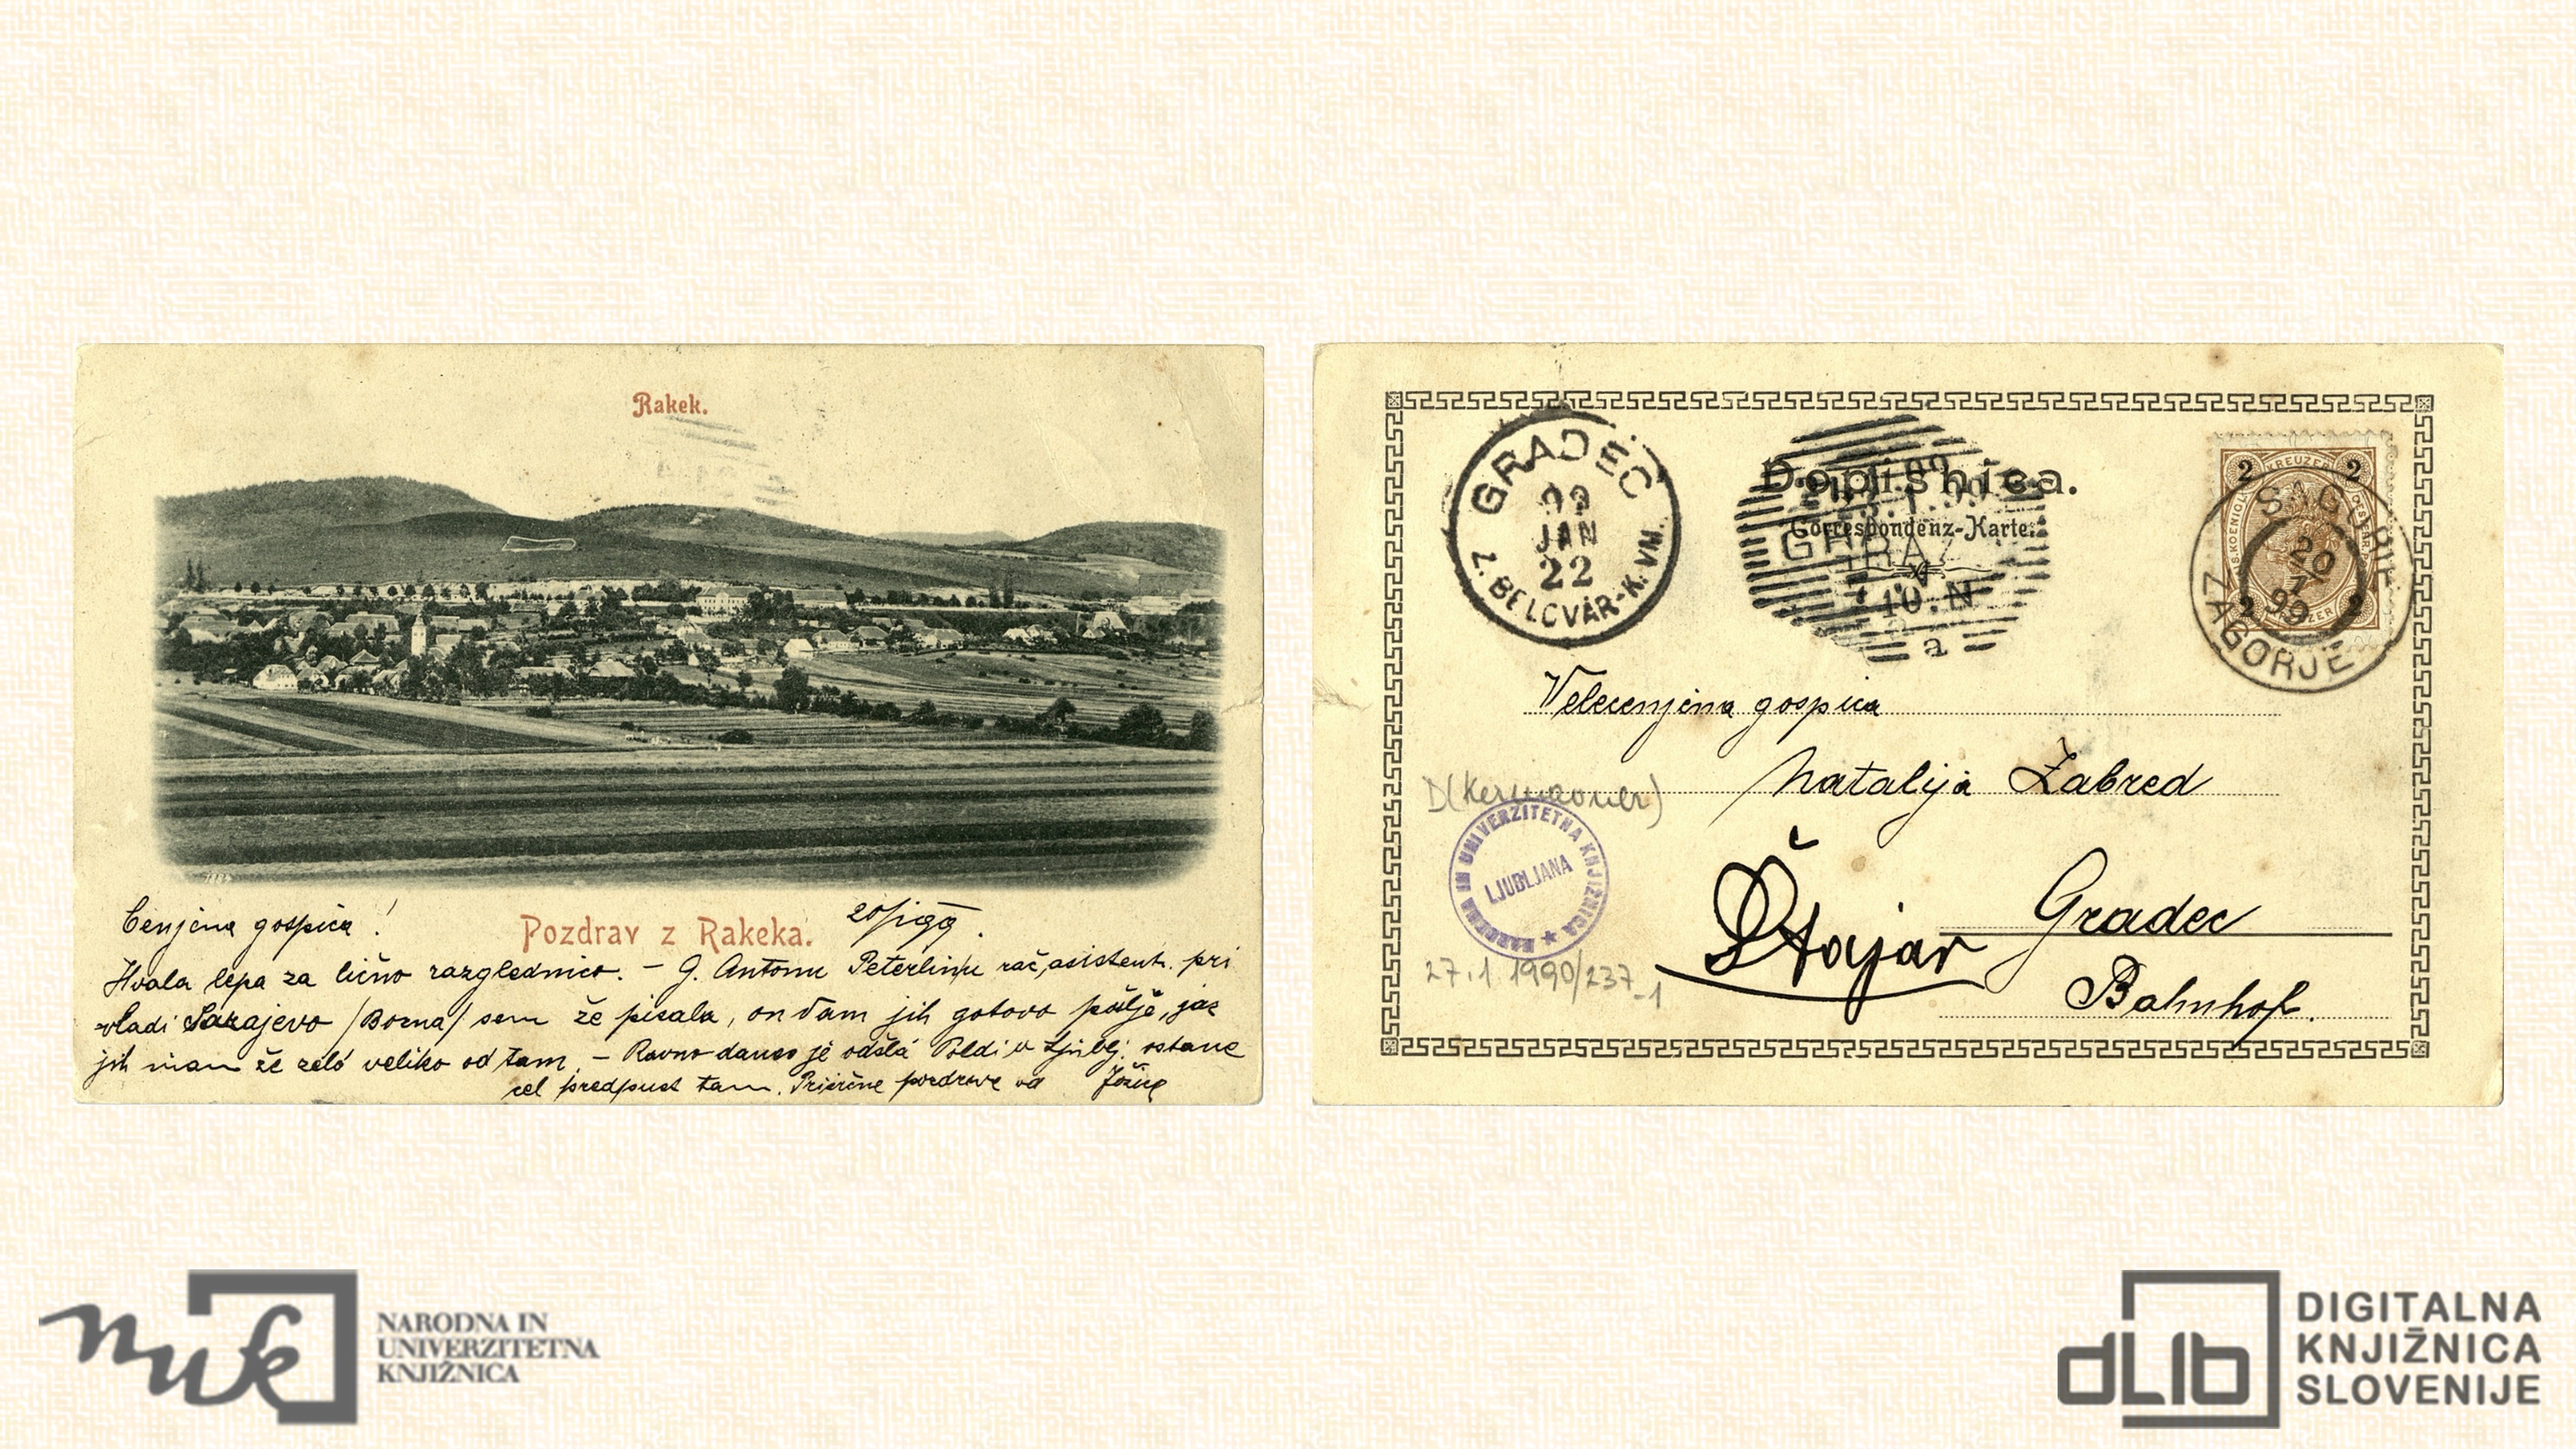 Rakek.
Cenjena gospica!
Pozdrav z Rakeka.
20/1 99.
Hvala lepa za lično razglednico. – G. Antonu Peterlinu rač. asistent. pri
vladi Sarajevo /Bosna/ sem že pisala, on Vam jih gotovo pošlje, jaz
jih imam že zelo veliko od tam. – Ravno danes je odšla Poldi v Ljublj. ostane
cel predpust tam. Prisrčne pozdrave od
GRADEC
99
JAN
22
Z. BELOVÁR-K. VM.
Dopisnica.
Correspondenz-Karte.
GRAZ
10.N
a
2 KREUZER 2
SAGORJE
20
1
99
ZAGORJE
Velecenjena gospica
Natalija Žabred
D(Kermavner)
NARODNA IN UNIVERZITETNA KNJIŽNICA
LJUBLJANA
27.1.1990/237-1
Štajar
Gradec
Bahnhof.
nuk
NARODNA IN
UNIVERZITETNA
KNJIŽNICA
dLib
DIGITALNA
KNJIŽNICA
SLOVENIJE